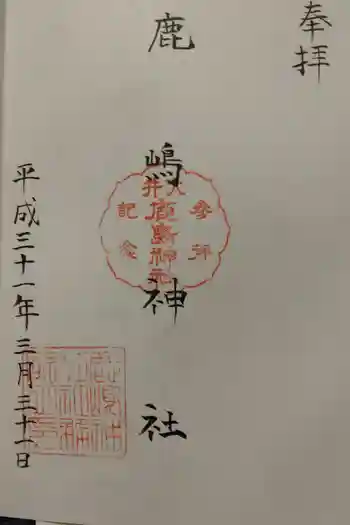 奉拝
鹿嶋神社
大井
鹿島神社
参拝
記念
平成三十一年三月三十一日